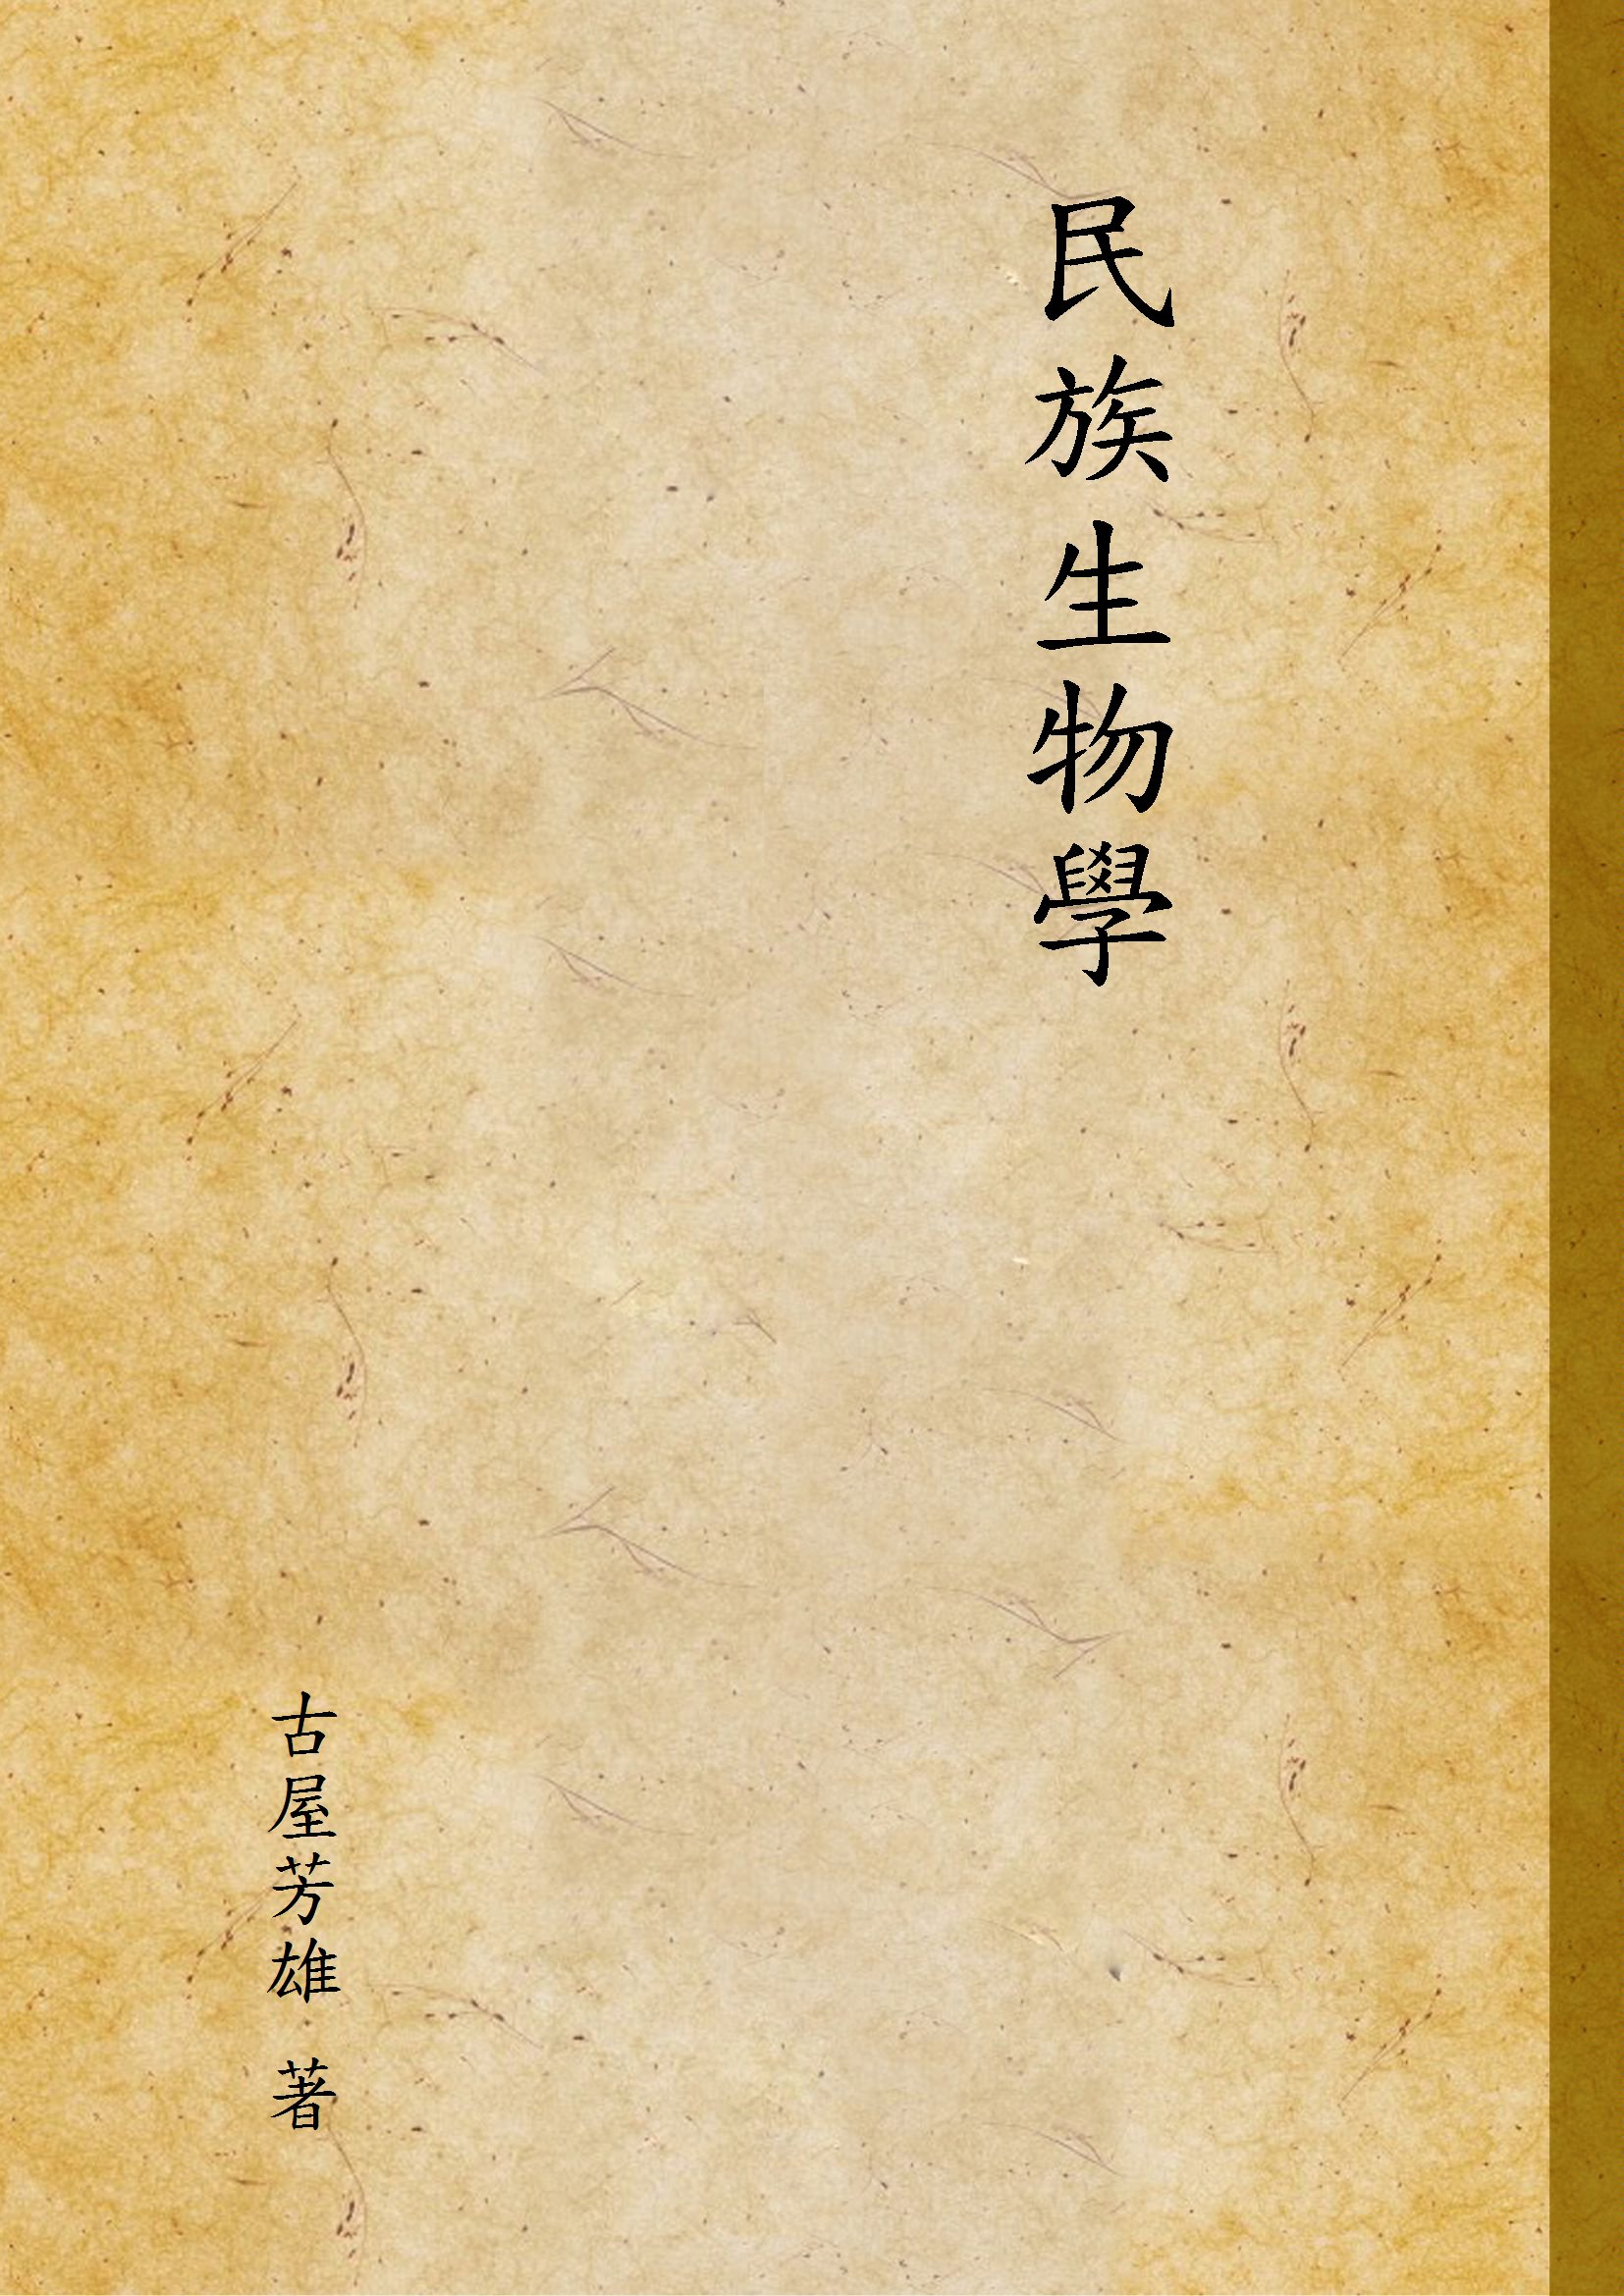 民族生物學
古屋芳雄 著